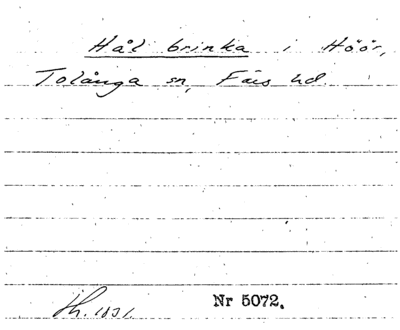 Hål brinka i Höör,
Tolånga sn, Färs hd.
Th. 1831.
Nr 5072.